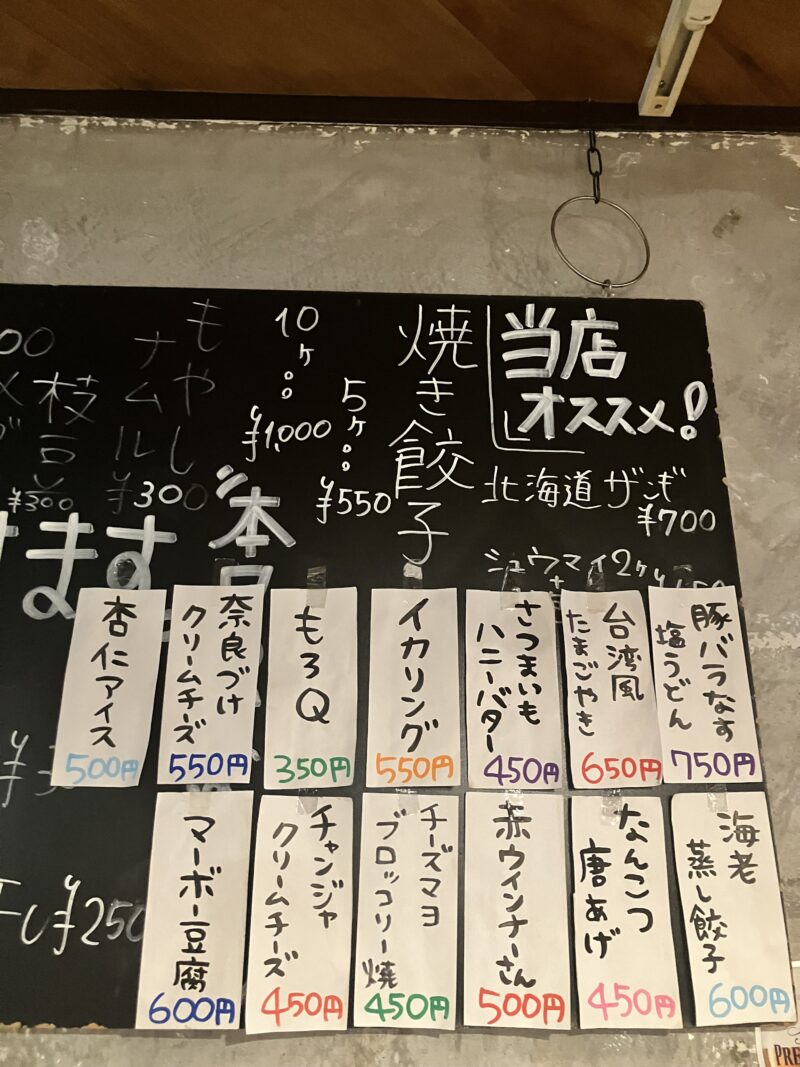 当店
オススメ!
北海道ザンギ
¥700
シュウマイ2ヶ
焼き餃子
5ヶ。。
¥550
10ヶ。。
¥1,000
もやし
ナムル
¥300
枝豆
¥300
ます
豚バラなす
塩うどん
750円
台湾風
たまごやき
650円
さつまいも
ハニーバター
450円
イカリング
550円
もろQ
350円
奈良づけ
クリームチーズ
550円
杏仁アイス
500円
海老
蒸し餃子
600円
なんこつ
唐あげ
450円
赤ウインナーさん
500円
チーズマヨ
ブロッコリー焼
450円
チャンジャ
クリームチーズ
450円
マーボー豆腐
600円
¥250